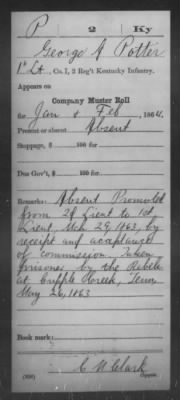 P 2 Ky
George A Potter
1" Lt, Co. I, 2 Reg't Kentucky Infantry.
Appears on
Company Muster Roll
for Jan & Feb, 1864.
Present or absent Absent
Stoppage, $ 100 for
Due Gov't, $ 100 for
Remarks: Absent Promoted
from 2d Lieut to 1st
Lieut, Mch 29, 1863, by
receipt and acceptance
of commission, Taken
prisoner by the Rebels
at Cripple Creek, Tenn
May 26, 1863
Book mark:
C W Clark
(358) Copyist.